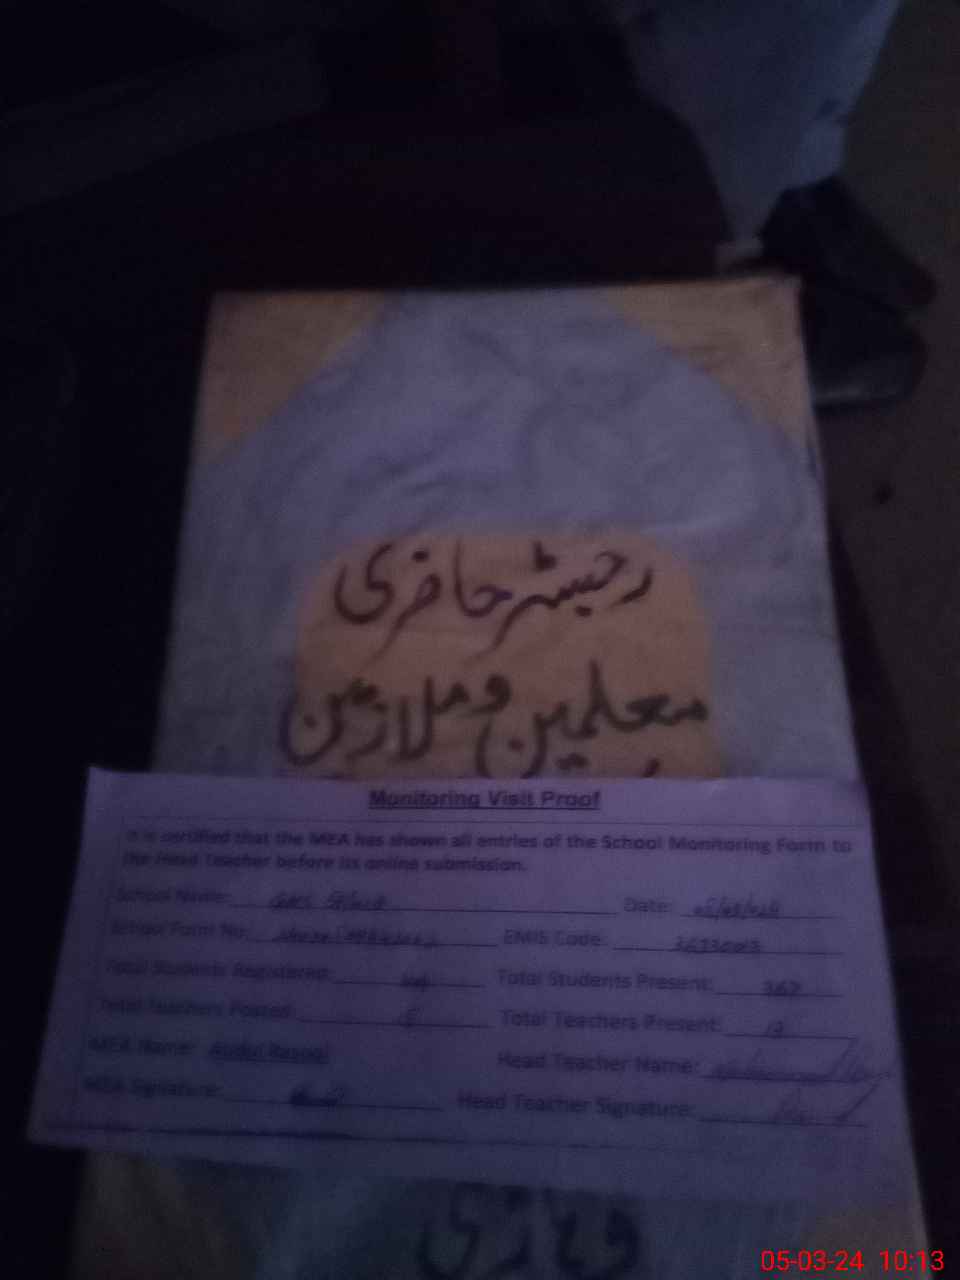 رجسٹر حاضری
معلمین و ملازمین
Monitoring Visit Proof
It is certified that the MEA has shown all entries of the School Monitoring Form to
the Head Teacher before its online submission.
School Name: Date:
School Form No: EMIS Code:
Total Students Registered: Total Students Present: 367
Total Teachers Posted: 15 Total Teachers Present: 13
MEA Name: Abdul Rasool Head Teacher Name:
MEA Signature: Head Teacher Signature:
وہاڑی
05-03-24 10:13